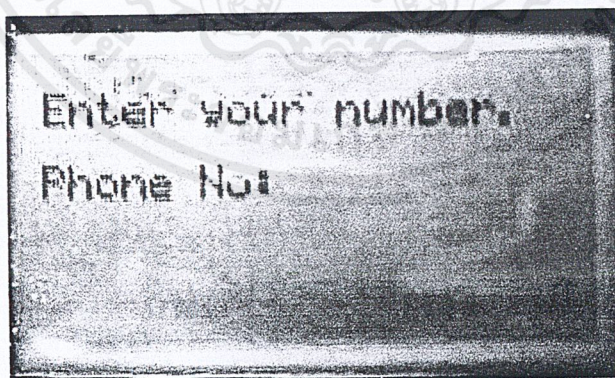 Enter your number.
Phone No: